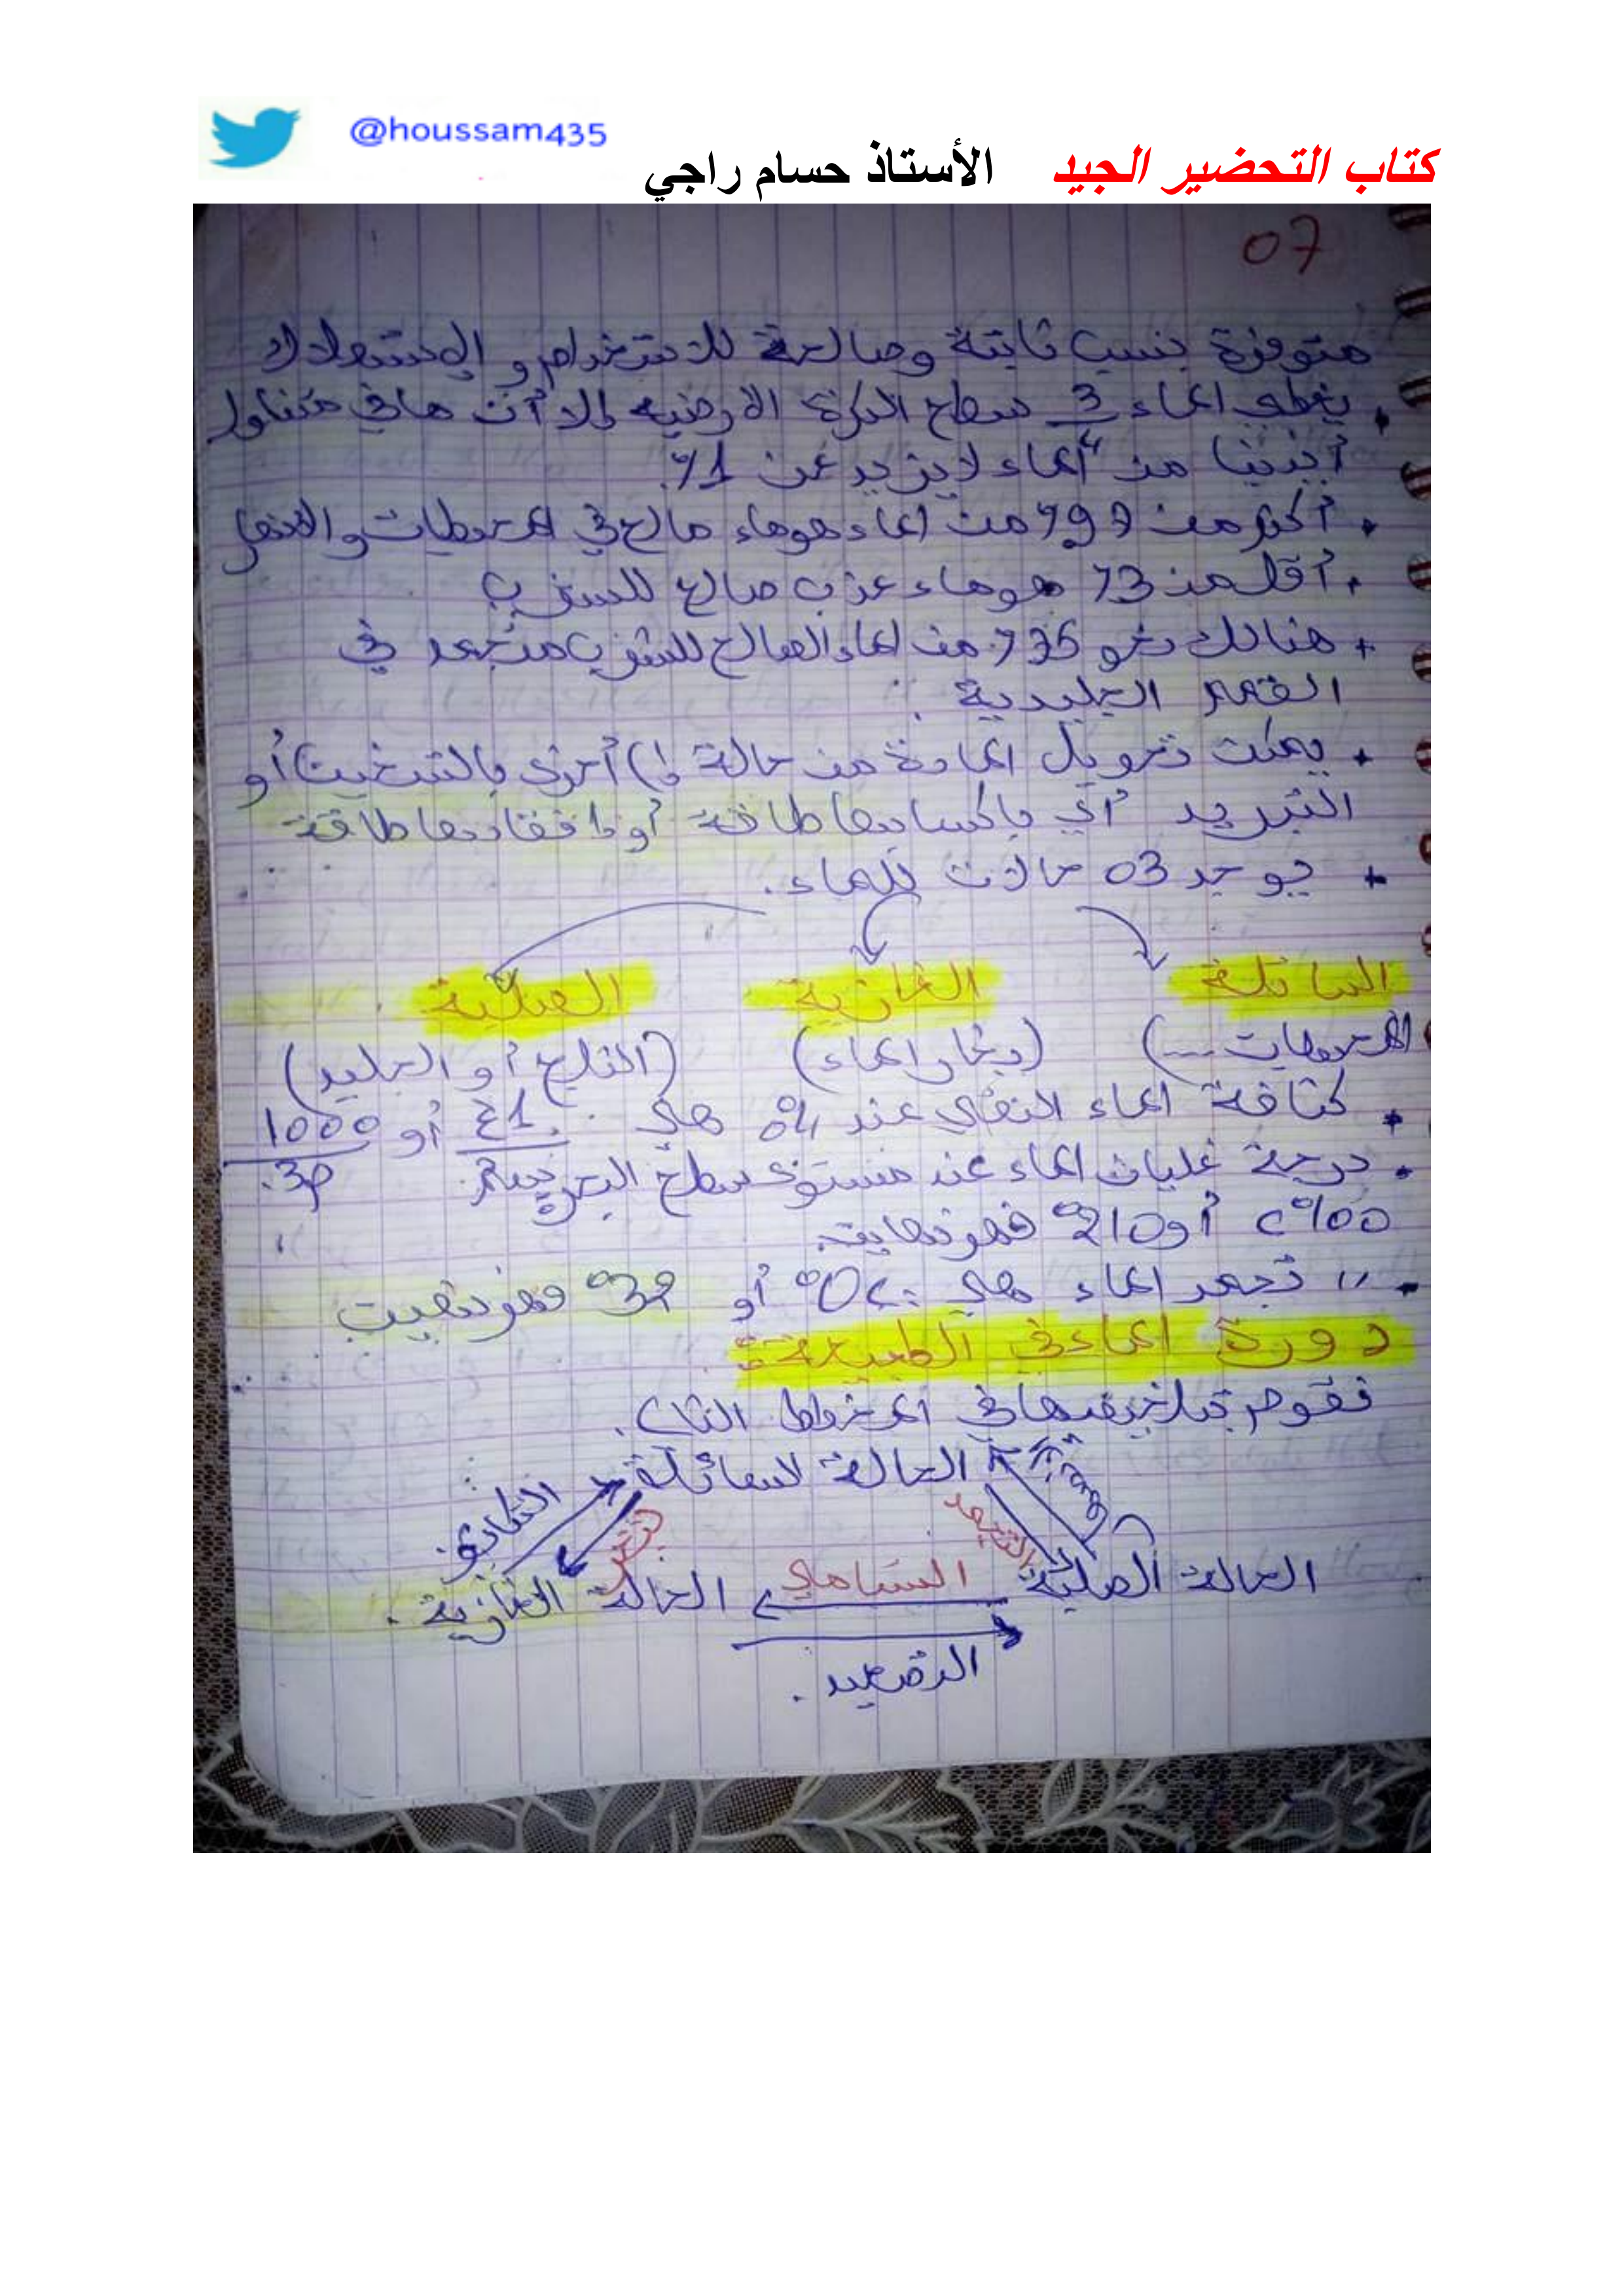 @houssam435
كتاب التحضير الجيد الأستاذ حسام راجي
07
متوفرة بنسب ثابتة وصالحة للاستخدام و الإستهلاك
. يغطي الماء 3 سطح الكرة الأرضية إلا أن ما في متناول
أيدينا من الماء لا يزيد عن 1%.
. أكثر من 99% من الماء هو ماء مالح في المحيطات و
. أقل من 3% هو ماء عذب صالح للشرب
+ هنالك نحو 35% من الماء الصالح للشرب متجمد في
القمم الجليدية .
+ يمكن تحويل المادة من حالة إلى أخرى بالتسخين أو
التبريد أي بإكسابها طاقة أو إفقادها طاقة
+ يوجد 03 حالات للماء.
السائلة الغازية الصلبة
المحيطات ...) (بخار الماء) (الثلج أو الجليد)
+ كثافة الماء النقي عند 4° هي 1 أو 1000
. درجة غليان الماء عند مستوى سطح البحر
100°c أو 212° فهرنهايت.
. " تجمد الماء هي 0°c أو 32° فهرنهيت
دورة الماء في الطبيعة:
نقوم بتلخيصها في المخطط التالي.
الحالة السائلة
التكاثف
تبخر
التجمد
الحالة الصلبة
التسامي
الحالة الغازية .
التصعيد .